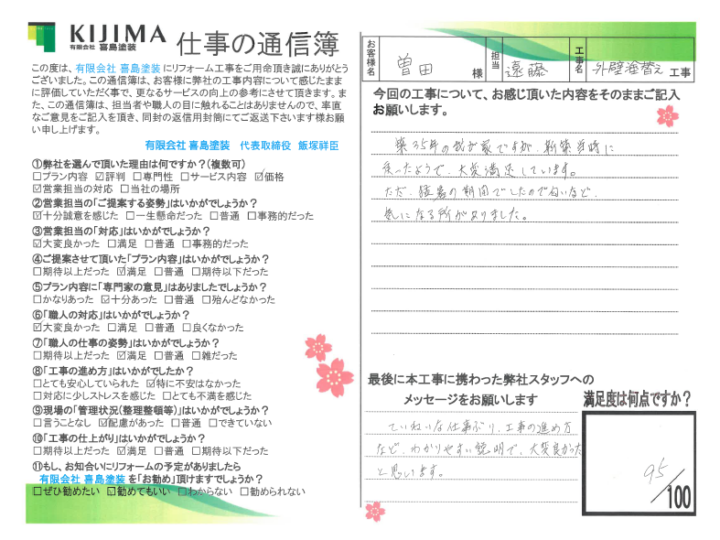 KIJIMA
有限会社 喜島塗装
仕事の通信簿
この度は、有限会社 喜島塗装 にリフォーム工事をご用命頂き誠にありがとう
ございました。この通信簿は、お客様に弊社の工事内容について感じたまま
に評価していただく事で、更なるサービスの向上の参考にさせて頂きます。ま
た、この通信簿は、担当者や職人の目に触れることはありませんので、率直
なご意見をご記入を頂き、同封の返信用封筒にてご返送下さいます様お願
い申し上げます。
有限会社 喜島塗装 代表取締役 飯塚祥臣
①弊社を選んで頂いた理由は何ですか?(複数可)
□プラン内容 ☑評判 □専門性 □サービス内容 ☑価格
☑営業担当の対応 □当社の場所
②営業担当の「ご提案する姿勢」はいかがでしょうか?
☑十分誠意を感じた □一生懸命だった □普通 □事務的だった
③営業担当の「対応」はいかがでしょうか?
☑大変良かった □満足 □普通 □事務的だった
④ご提案させて頂いた「プラン内容」はいかがでしょうか?
□期待以上だった ☑満足 □普通 □期待以下だった
⑤プラン内容に「専門家の意見」はありましたでしょうか?
□かなりあった ☑十分あった □普通 □殆んどなかった
⑥「職人の対応」はいかがでしょうか?
☑大変良かった □満足 □普通 □良くなかった
⑦「職人の仕事の姿勢」はいかがでしょうか?
□期待以上だった ☑満足 □普通 □雑だった
⑧「工事の進め方」はいかがでしたか?
□とても安心していられた ☑特に不安はなかった
□対応に少しストレスを感じた □とても不満を感じた
⑨現場の「管理状況(整理整頓等)」はいかがでしょうか?
□言うことなし ☑配慮があった □普通 □できていない
⑩「工事の仕上がり」はいかがでしょうか?
□期待以上だった ☑満足 □普通 □期待以下だった
⑪もし、お知合いにリフォームの予定がありましたら
有限会社 喜島塗装 を「お勧め」頂けますでしょうか?
□ぜひ勧めたい ☑勧めてもいい □わからない □勧められない
お客様名 曽田 様 担当 遠藤 工事名 外壁塗替え 工事
今回の工事について、お感じ頂いた内容をそのままご記入
お願いします。
築35年の我が家ですが、新築当時に
戻ったようで、大変満足しています。
ただ、
気になる所がありました。
最後に本工事に携わった弊社スタッフへの
メッセージをお願いします
満足度は何点ですか?
ていねいな仕事ぶり、工事の進め方
など、わかりやすい説明で、大変良かった
と思います。
95/100